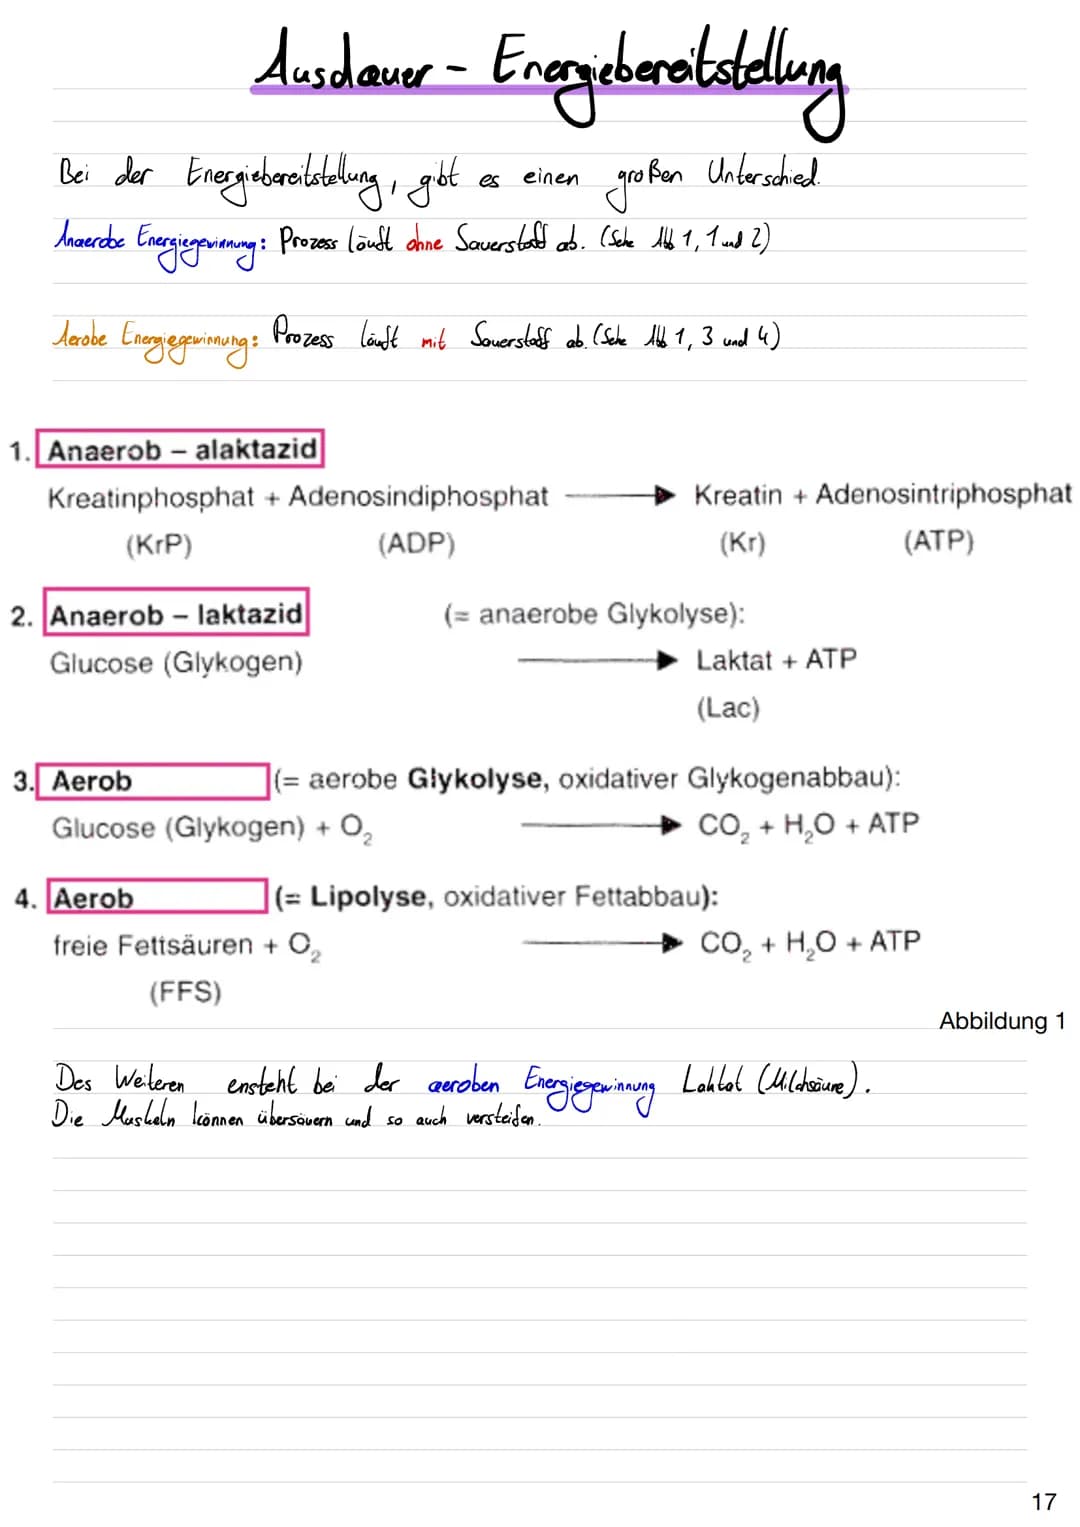 Ausdauer - Energiebereitstellung
Bei der Energiebereitstellung, gibt es einen großen Unterschied.
Anaerobe Energiegewinnung: Prozess läuft ohne Sauerstoff ab. (Sehe Abb 1, 1 und 2)
Aerobe Energiegewinnung: Prozess läuft mit Sauerstoff ab. (Sehe Abb 1, 3 und 4)
1. Anaerob – alaktazid
Kreatinphosphat + Adenosindiphosphat → Kreatin + Adenosintriphosphat
(KrP) (ADP) (Kr) (ATP)
2. Anaerob – laktazid (= anaerobe Glykolyse):
Glucose (Glykogen) → Laktat + ATP
(Lac)
3. Aerob (= aerobe Glykolyse, oxidativer Glykogenabbau):
Glucose (Glykogen) + O₂ → CO₂ + H₂O + ATP
4. Aerob (= Lipolyse, oxidativer Fettabbau):
freie Fettsäuren + O₂ → CO₂ + H₂O + ATP
(FFS)
Abbildung 1
Des Weiteren ensteht bei der aeroben Energiegewinnung Laktat (Milchsäure).
Die Muskeln können übersäuern und so auch versteifen.
17